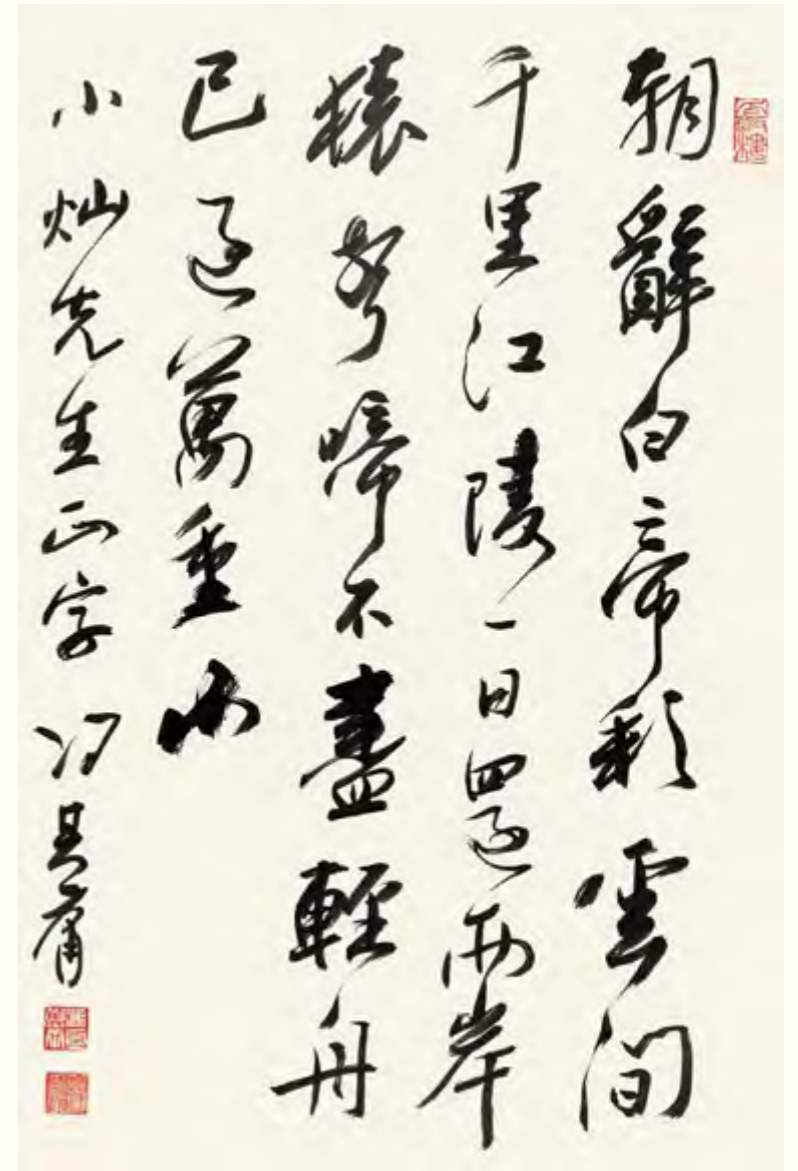 朝辭白帝彩雲間
千里江陵一日還兩岸
猿聲啼不盡輕舟
已過萬重山
小灿先生正字 冯其庸